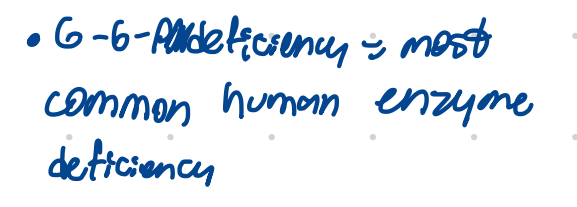 • G-6-PD deficiency = most
common human enzyme
deficiency